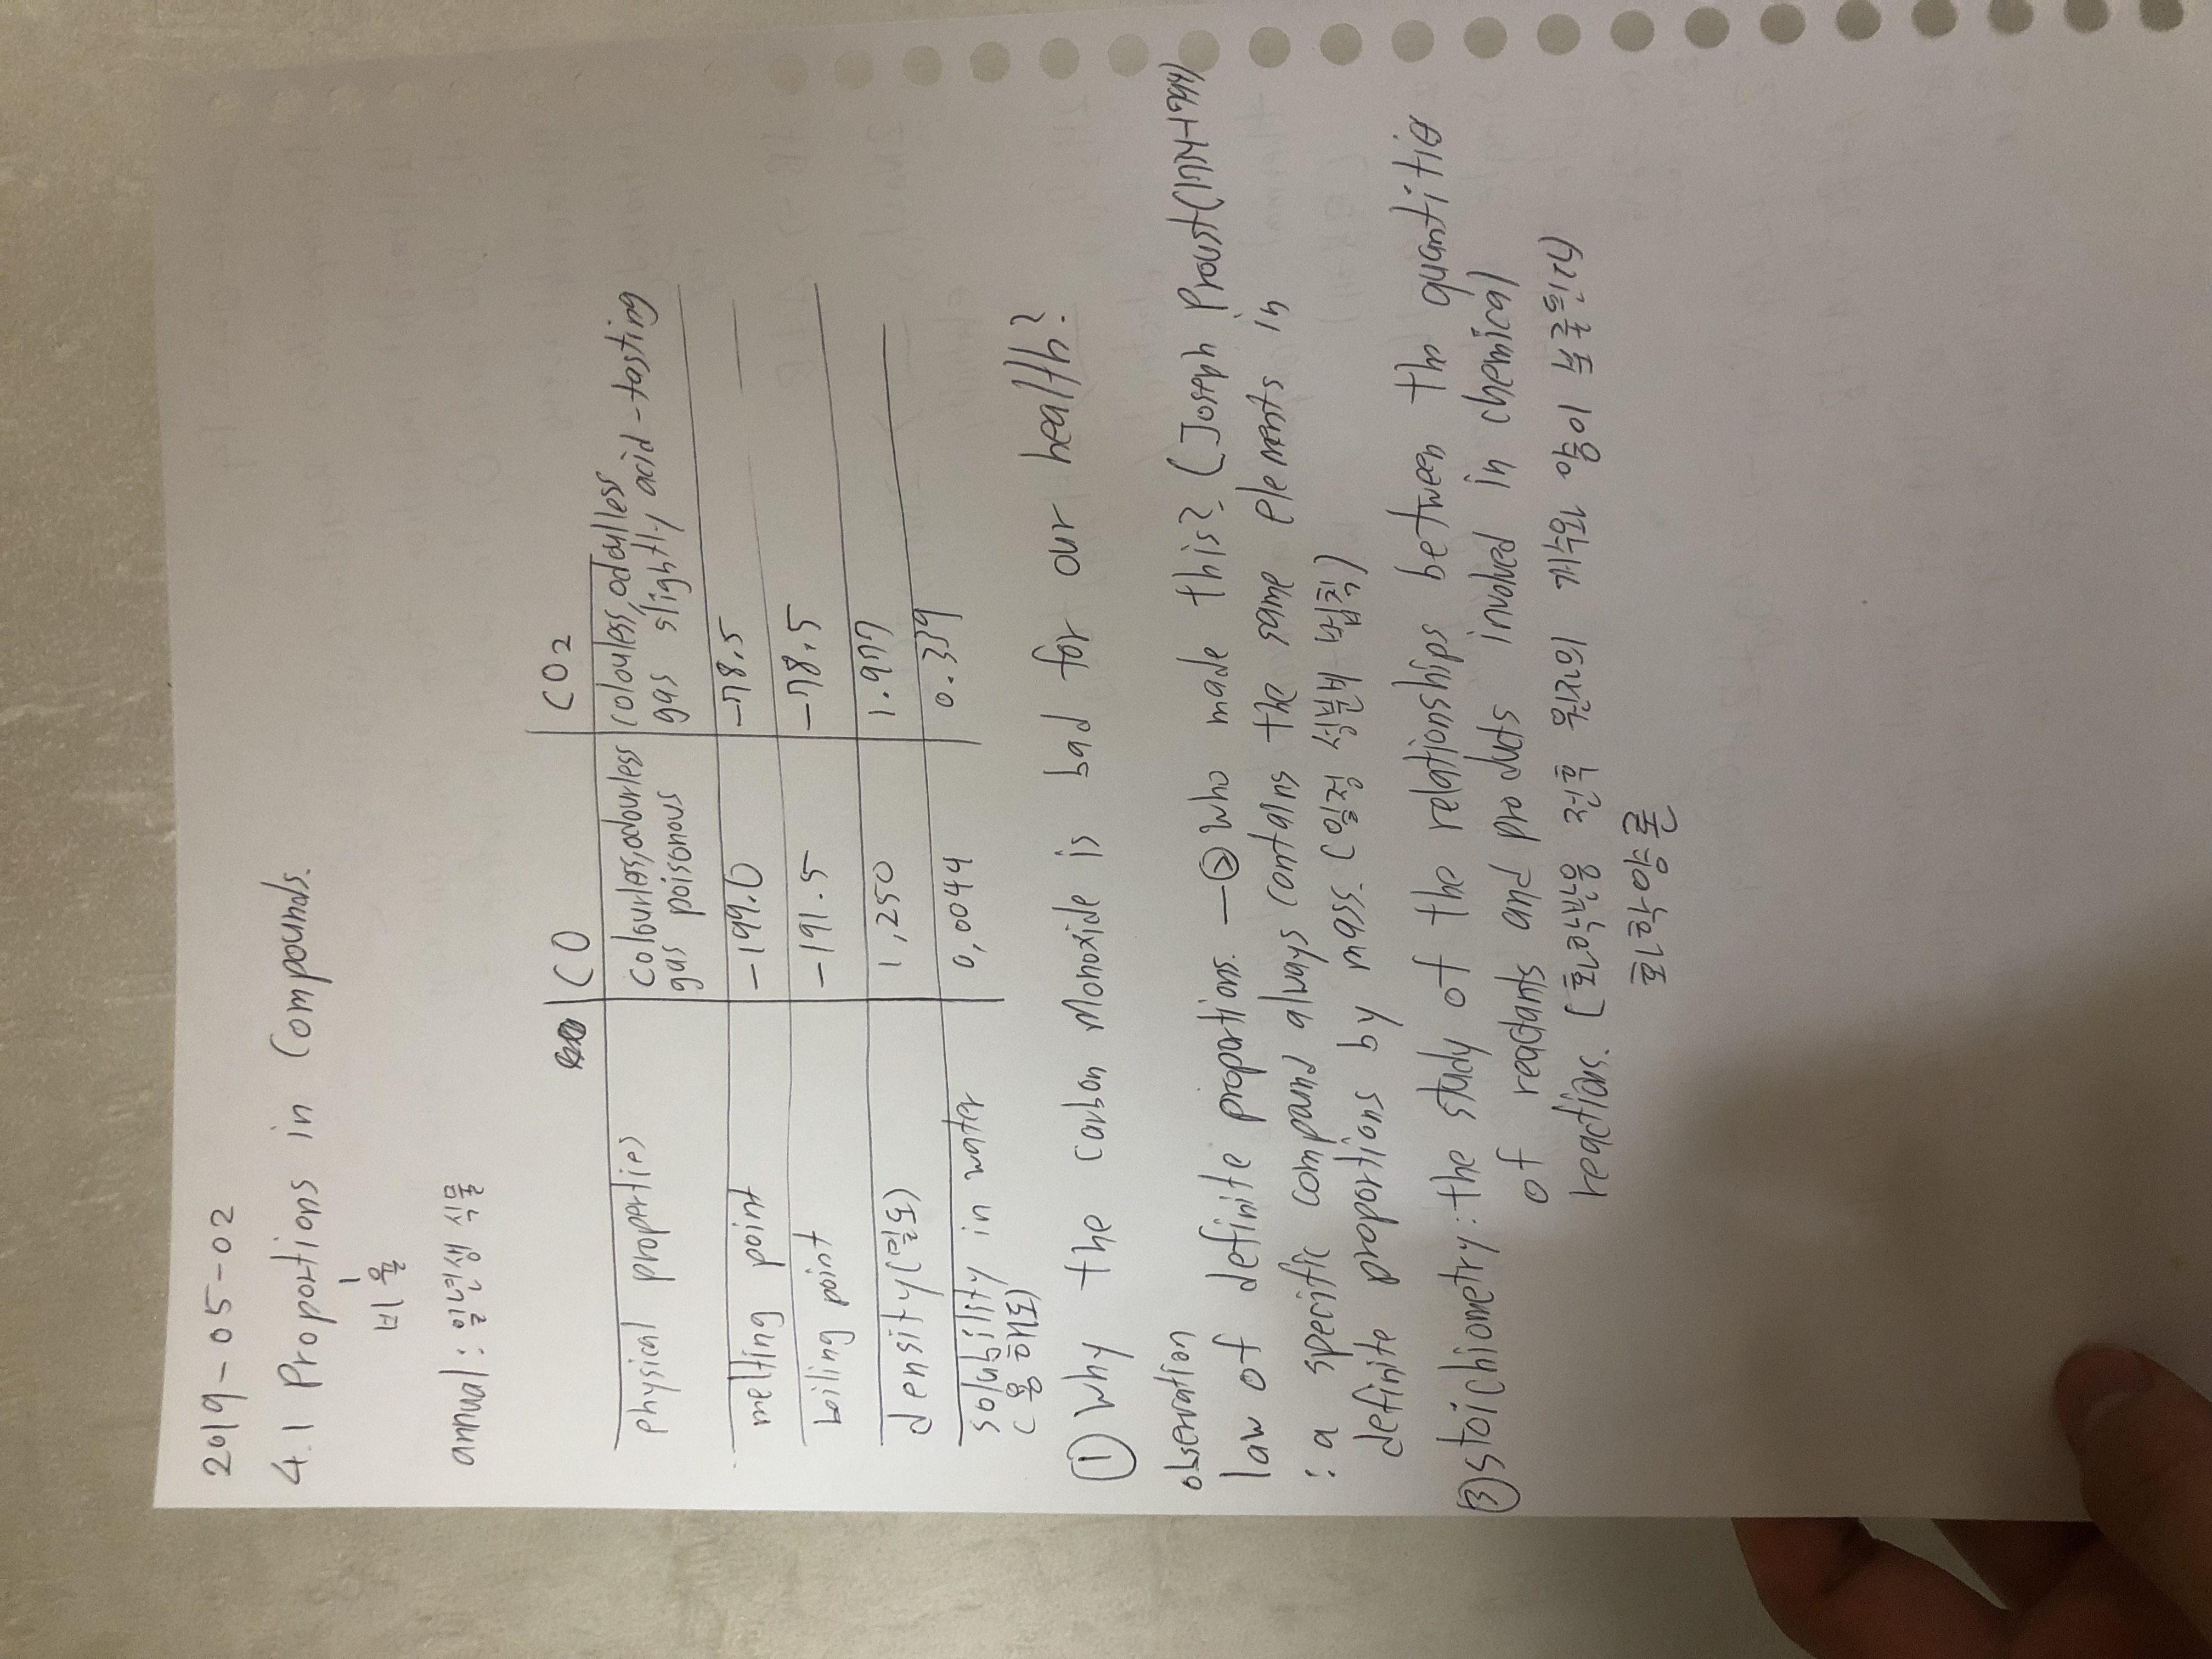 2019-05-02
4.1 Proportions in Compounds.
비율
annual : 일년생 식물
CO CO2
physical properties Colourless,odourless gas poisonous colouless,odoulless gas slightly acid-tasting
melting point -199.0 -78.5
boiling point -191.5 -78.5
density(밀도) 1,250 1.977
solubility in water 0,0044 0.339
(용해도)
① Why the carbon Monoxide is bad for our health?
observation
law of definite proportions. - ② Who made this? (Joseph Proust
: a specific compound always contains the same elements in
definite proportions by mass. (일정 성분비 법칙)
③ stoichiometry: the study of the relationships between the quantitie
of reactants and products involved in chemical
reactions. (화학반응 전후 원자의 개수와 양이
화학양론